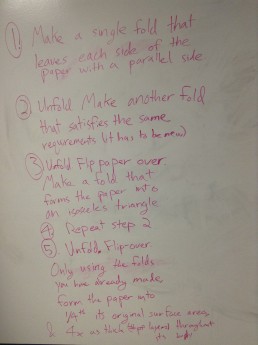 ① Make a single fold that
leaves each side of the
paper with a parallel side
② Unfold Make another fold
that satisfies the same
requirements (it has to be new)
③ Unfold Flip paper over.
Make a fold that
forms the paper into
an isosceles triangle
④ Repeat step 2
⑤ Unfold. Flip over.
Only using the folds
you have already made,
form the paper into
1/4th its original surface area
& 4x as thick layered throughout
its